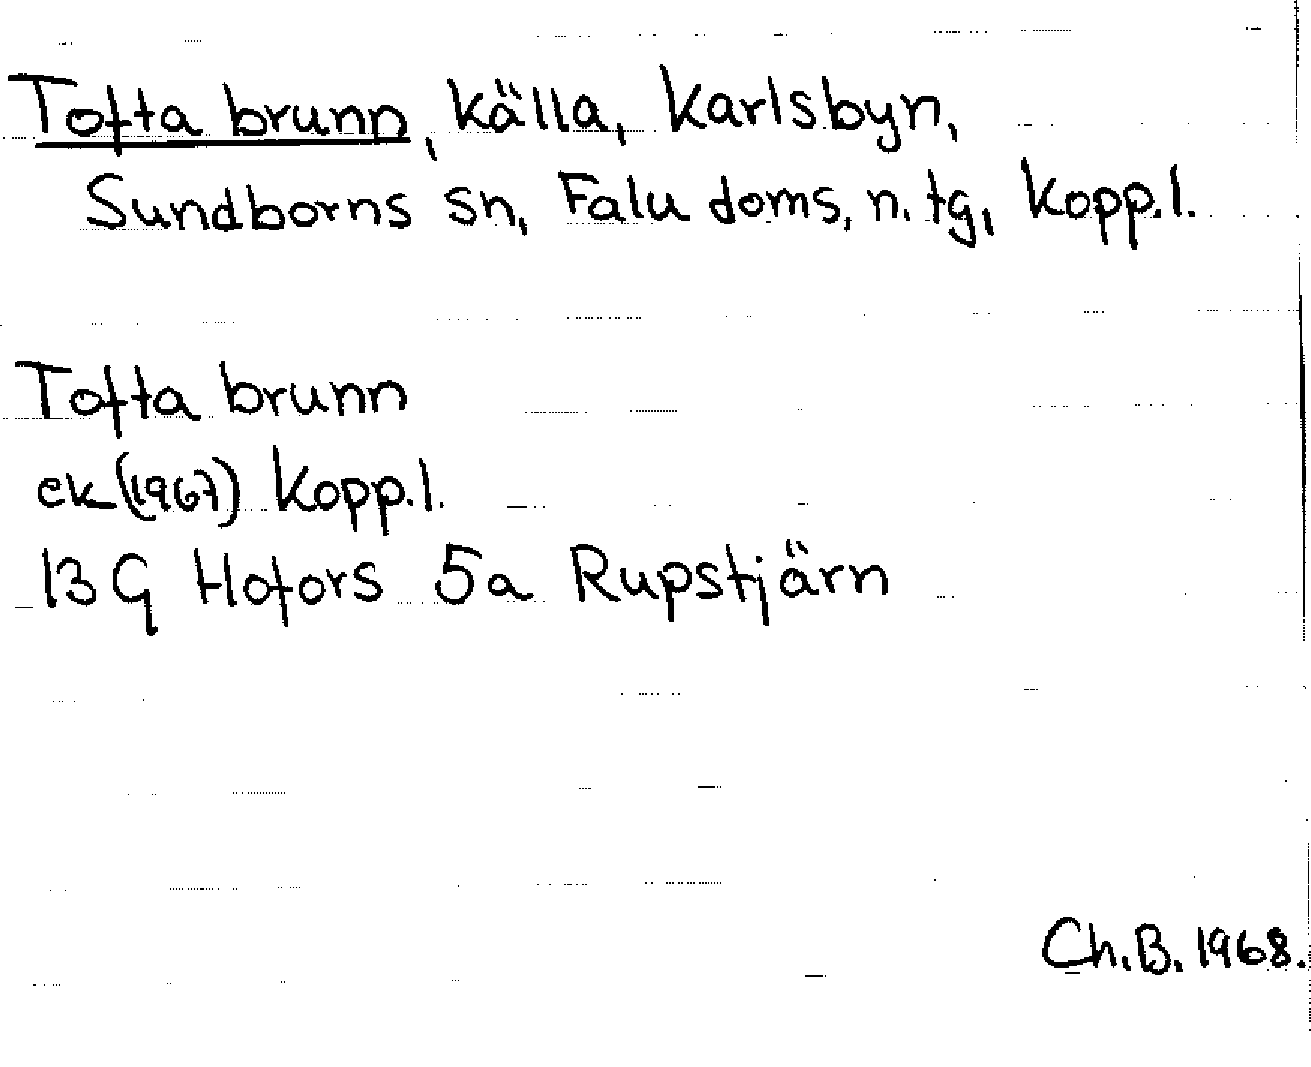 Tofta brunn, källa, Karlsbyn,
Sundborns sn, Falu doms, n. tg, Kopp.l.
Tofta brunn
ek (1967) Kopp.l.
13 G Hofors 5a Rupstjärn
Ch.B. 1968.